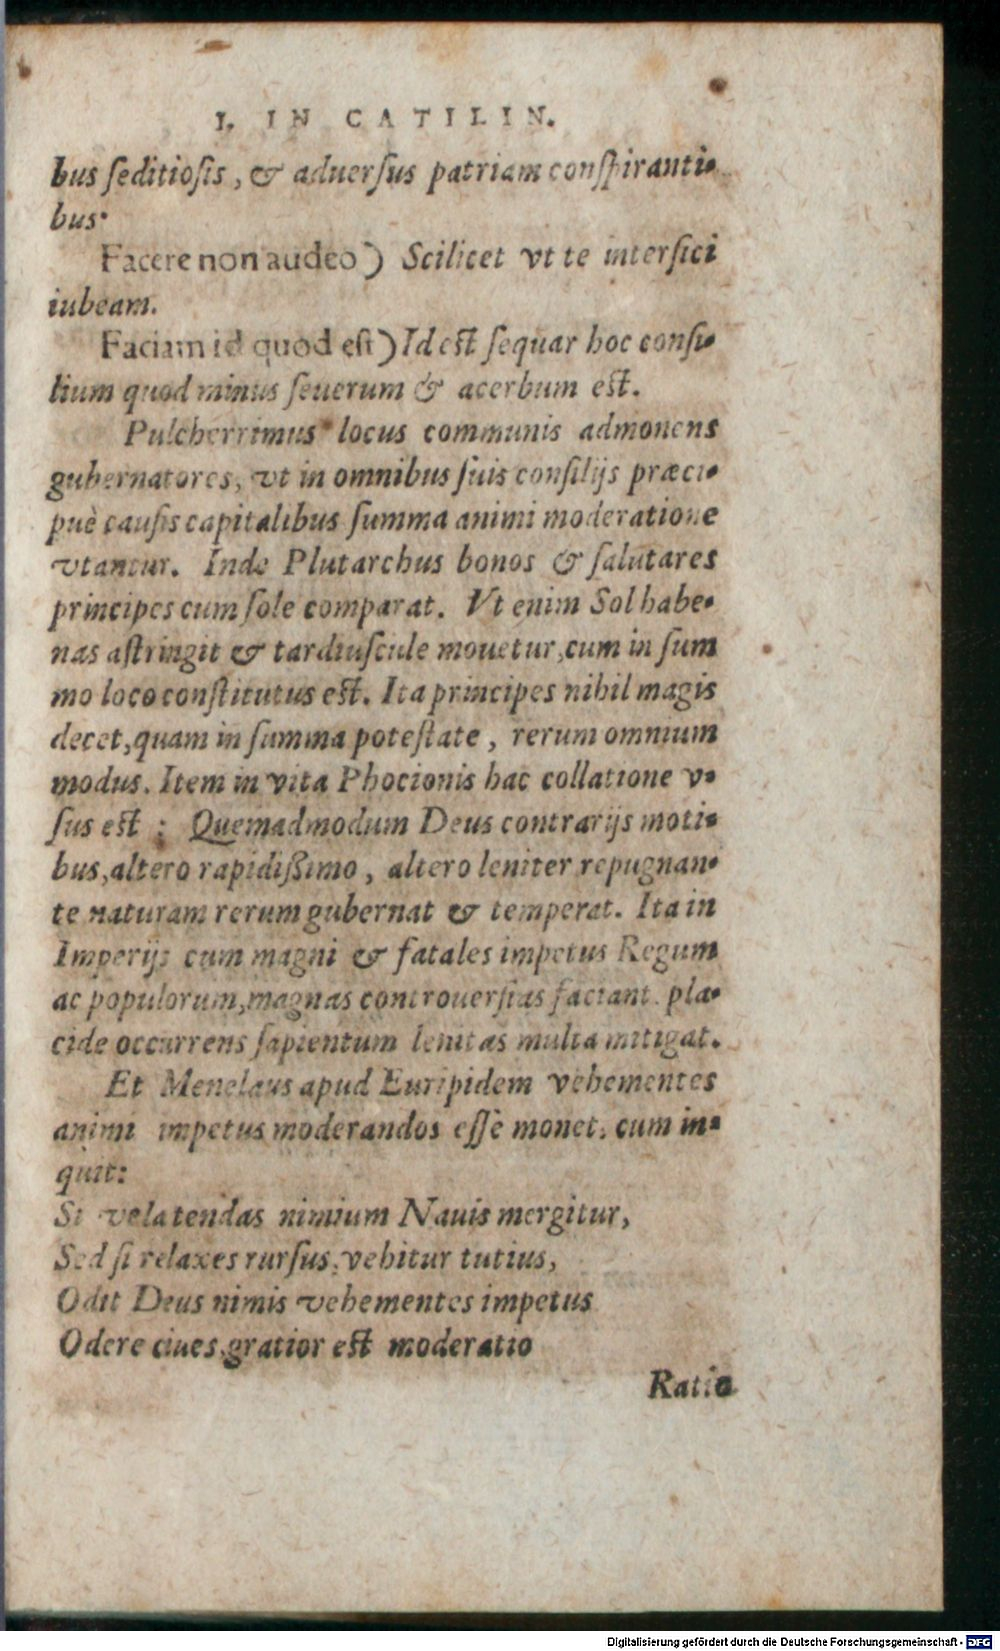 I. IN CATILIN.
bus ſeditioſis, & aduerſus patriam conſpiranti-
bus.
Facere non audeo) Scilicet vt te interfici
iubeam.
Faciam id quod eſt) Id eſt ſequar hoc conſi-
lium quod minus ſeuerum & acerbum eſt.
Pulcherrimus locus communis admonens
gubernatores, vt in omnibus ſuis conſilijs præci-
puè cauſis capitalibus ſumma animi moderatione
vtantur. Inde Plutarchus bonos & ſalutares
principes cum ſole comparat. Vt enim Sol habe-
nas aſtringit & tardiuſcule mouetur, cum in ſum
mo loco conſtitutus eſt. Ita principes nihil magis
decet, quam in ſumma poteſtate, rerum omnium
modus. Item in vita Phocionis hac collatione v-
ſus eſt: Quemadmodum Deus contrarijs moti-
bus, altero rapidißimo, altero leniter repugnan-
te naturam rerum gubernat & temperat. Ita in
Imperijs cum magni & fatales impetus Regum
ac populorum, magnas controuerſias faciant. pla-
cide occurrens ſapientum lenitas multa mitigat.
Et Menelaus apud Euripidem vehementes
animi impetus moderandos eſſe monet, cum in-
quit:
Si vela tendas nimium Nauis mergitur,
Sed ſi relaxes rurſus, vehitur tutius,
Odit Deus nimis vehementes impetus
Odere ciues, gratior eſt moderatio
Ratio
Digitalisierung gefördert durch die Deutsche Forschungsgemeinschaft - DFG